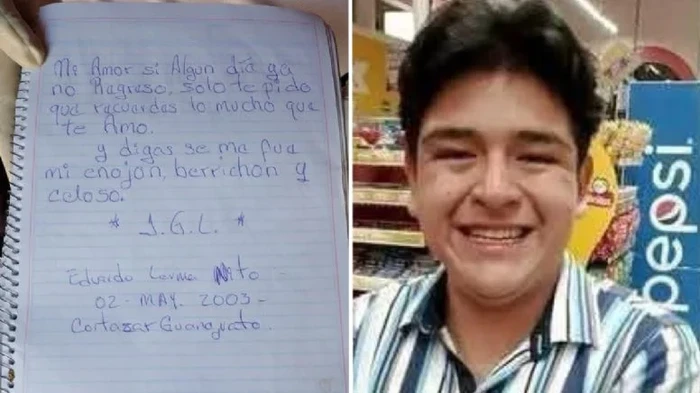 Mi Amor si Algun día ya
no Regreso, solo te pido
que recuerdes lo mucho que
te Amo.
y digas se me fue
mi enojon, berrichon y
celoso.
* J.G.L. *
Eduardo Lerma Nito
02 - MAY. 2003 -
Cortazar Guanajuato.
pepsi